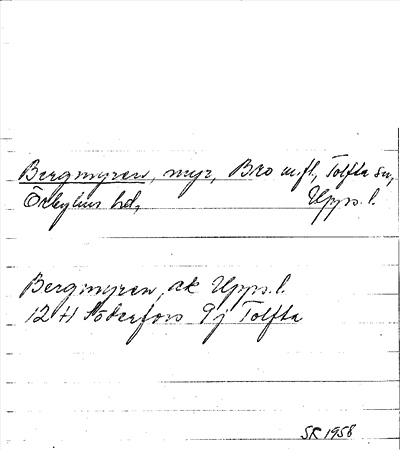 Bergmyren, myr, Bro m.fl., Tolfta sn,
Örbyhus hd, Upps. l.
Bergmyren, ek Upps. l.
12 H Söderfors 9 j Tolfta
SR 1958